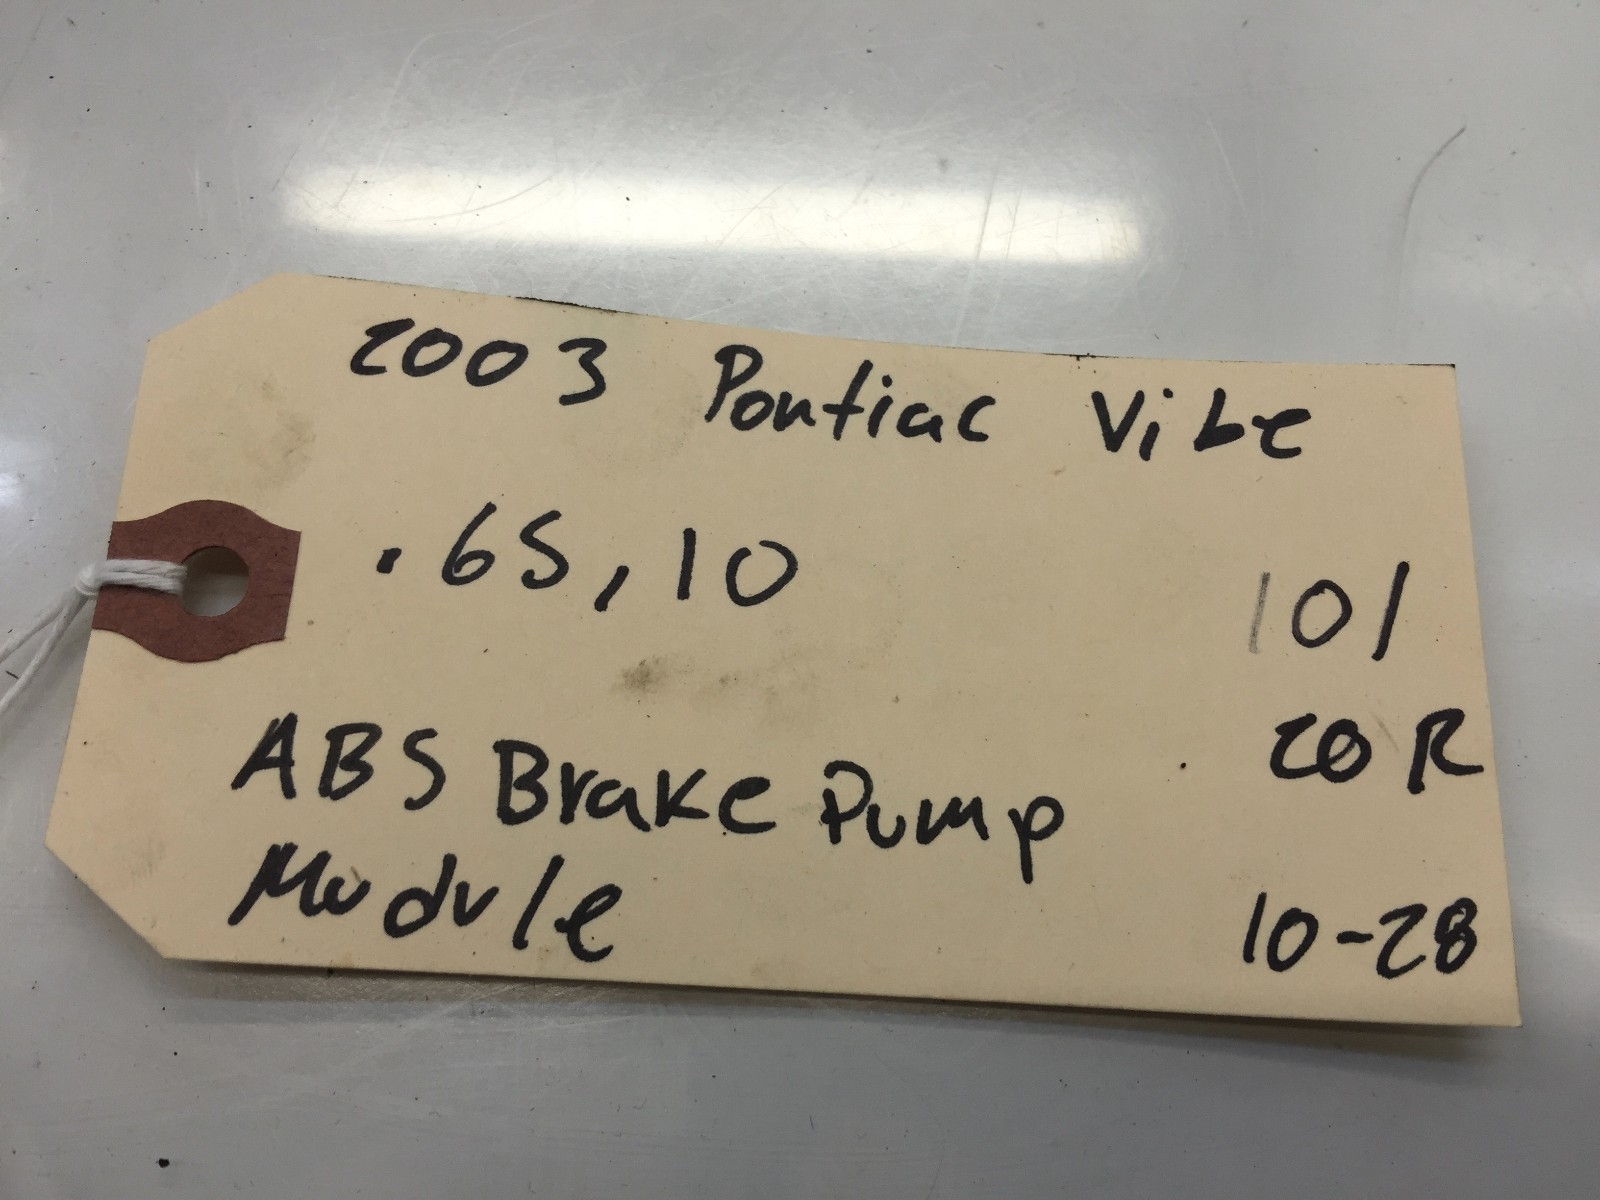 2003 Pontiac Vibe
.65,10
101
20R
ABS Brake Pump
Module
10-28